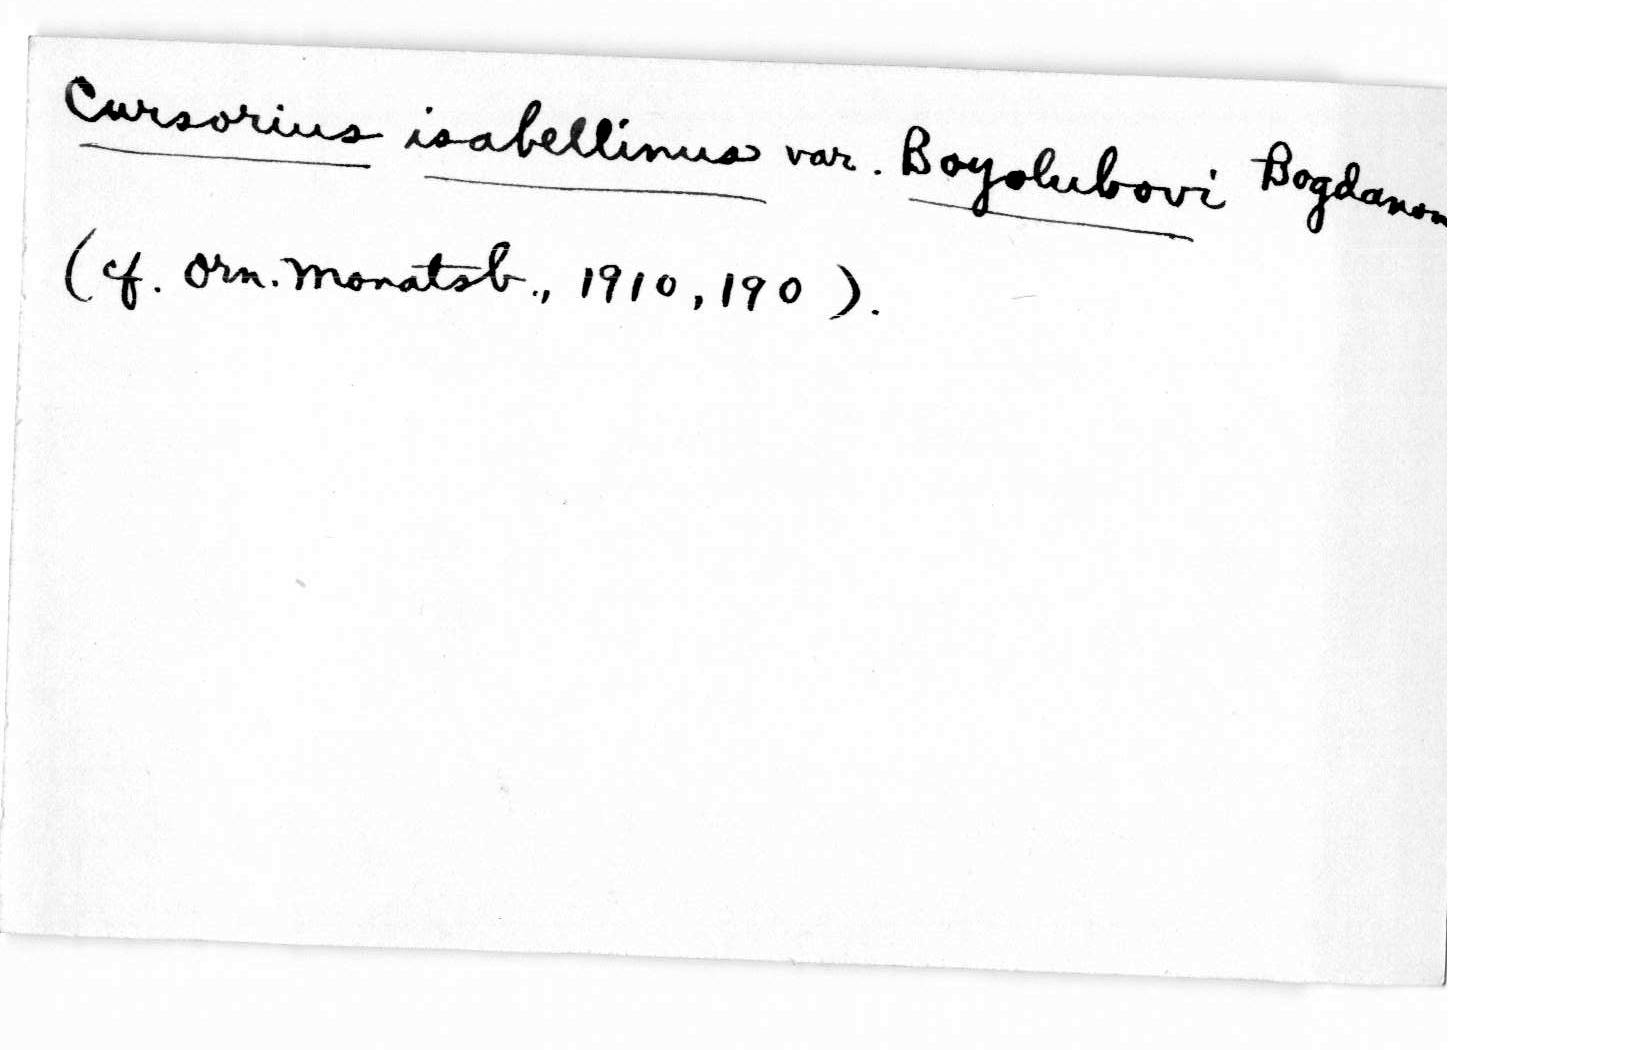 Cursorius isabellinus var. Boyolubovi Bogdanow
(cf. Orn. Monatsb., 1910, 190).